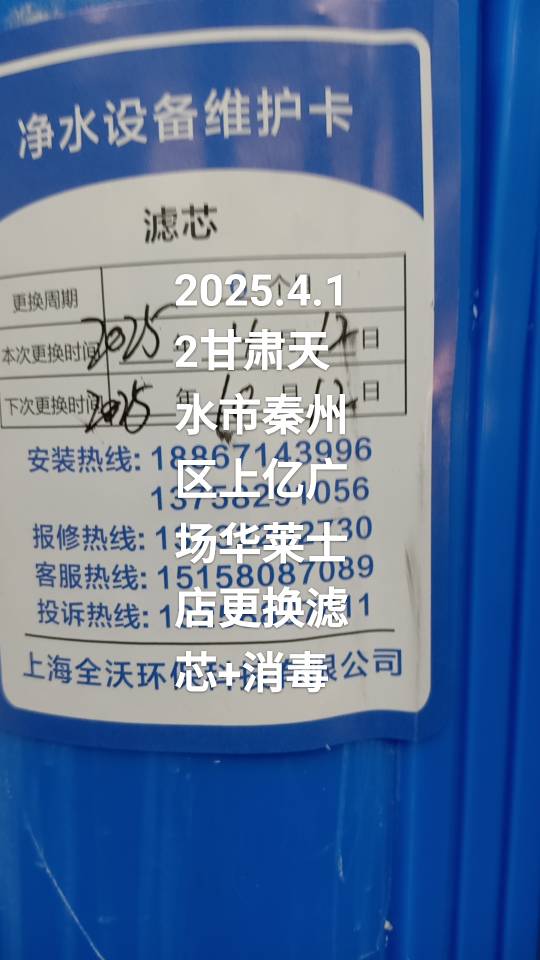 净水设备维护卡
滤芯
更换周期
本次更换时间 2025 年 12 日
下次更换时间 2025 年 10 月 12 日
安装热线: 18867143996
报修热线:
客服热线: 15158087089
投诉热线:
上海全沃环保科技有限公司
2025.4.1
2甘肃天
水市秦州
区上亿广
场华莱士
店更换滤
芯+消毒